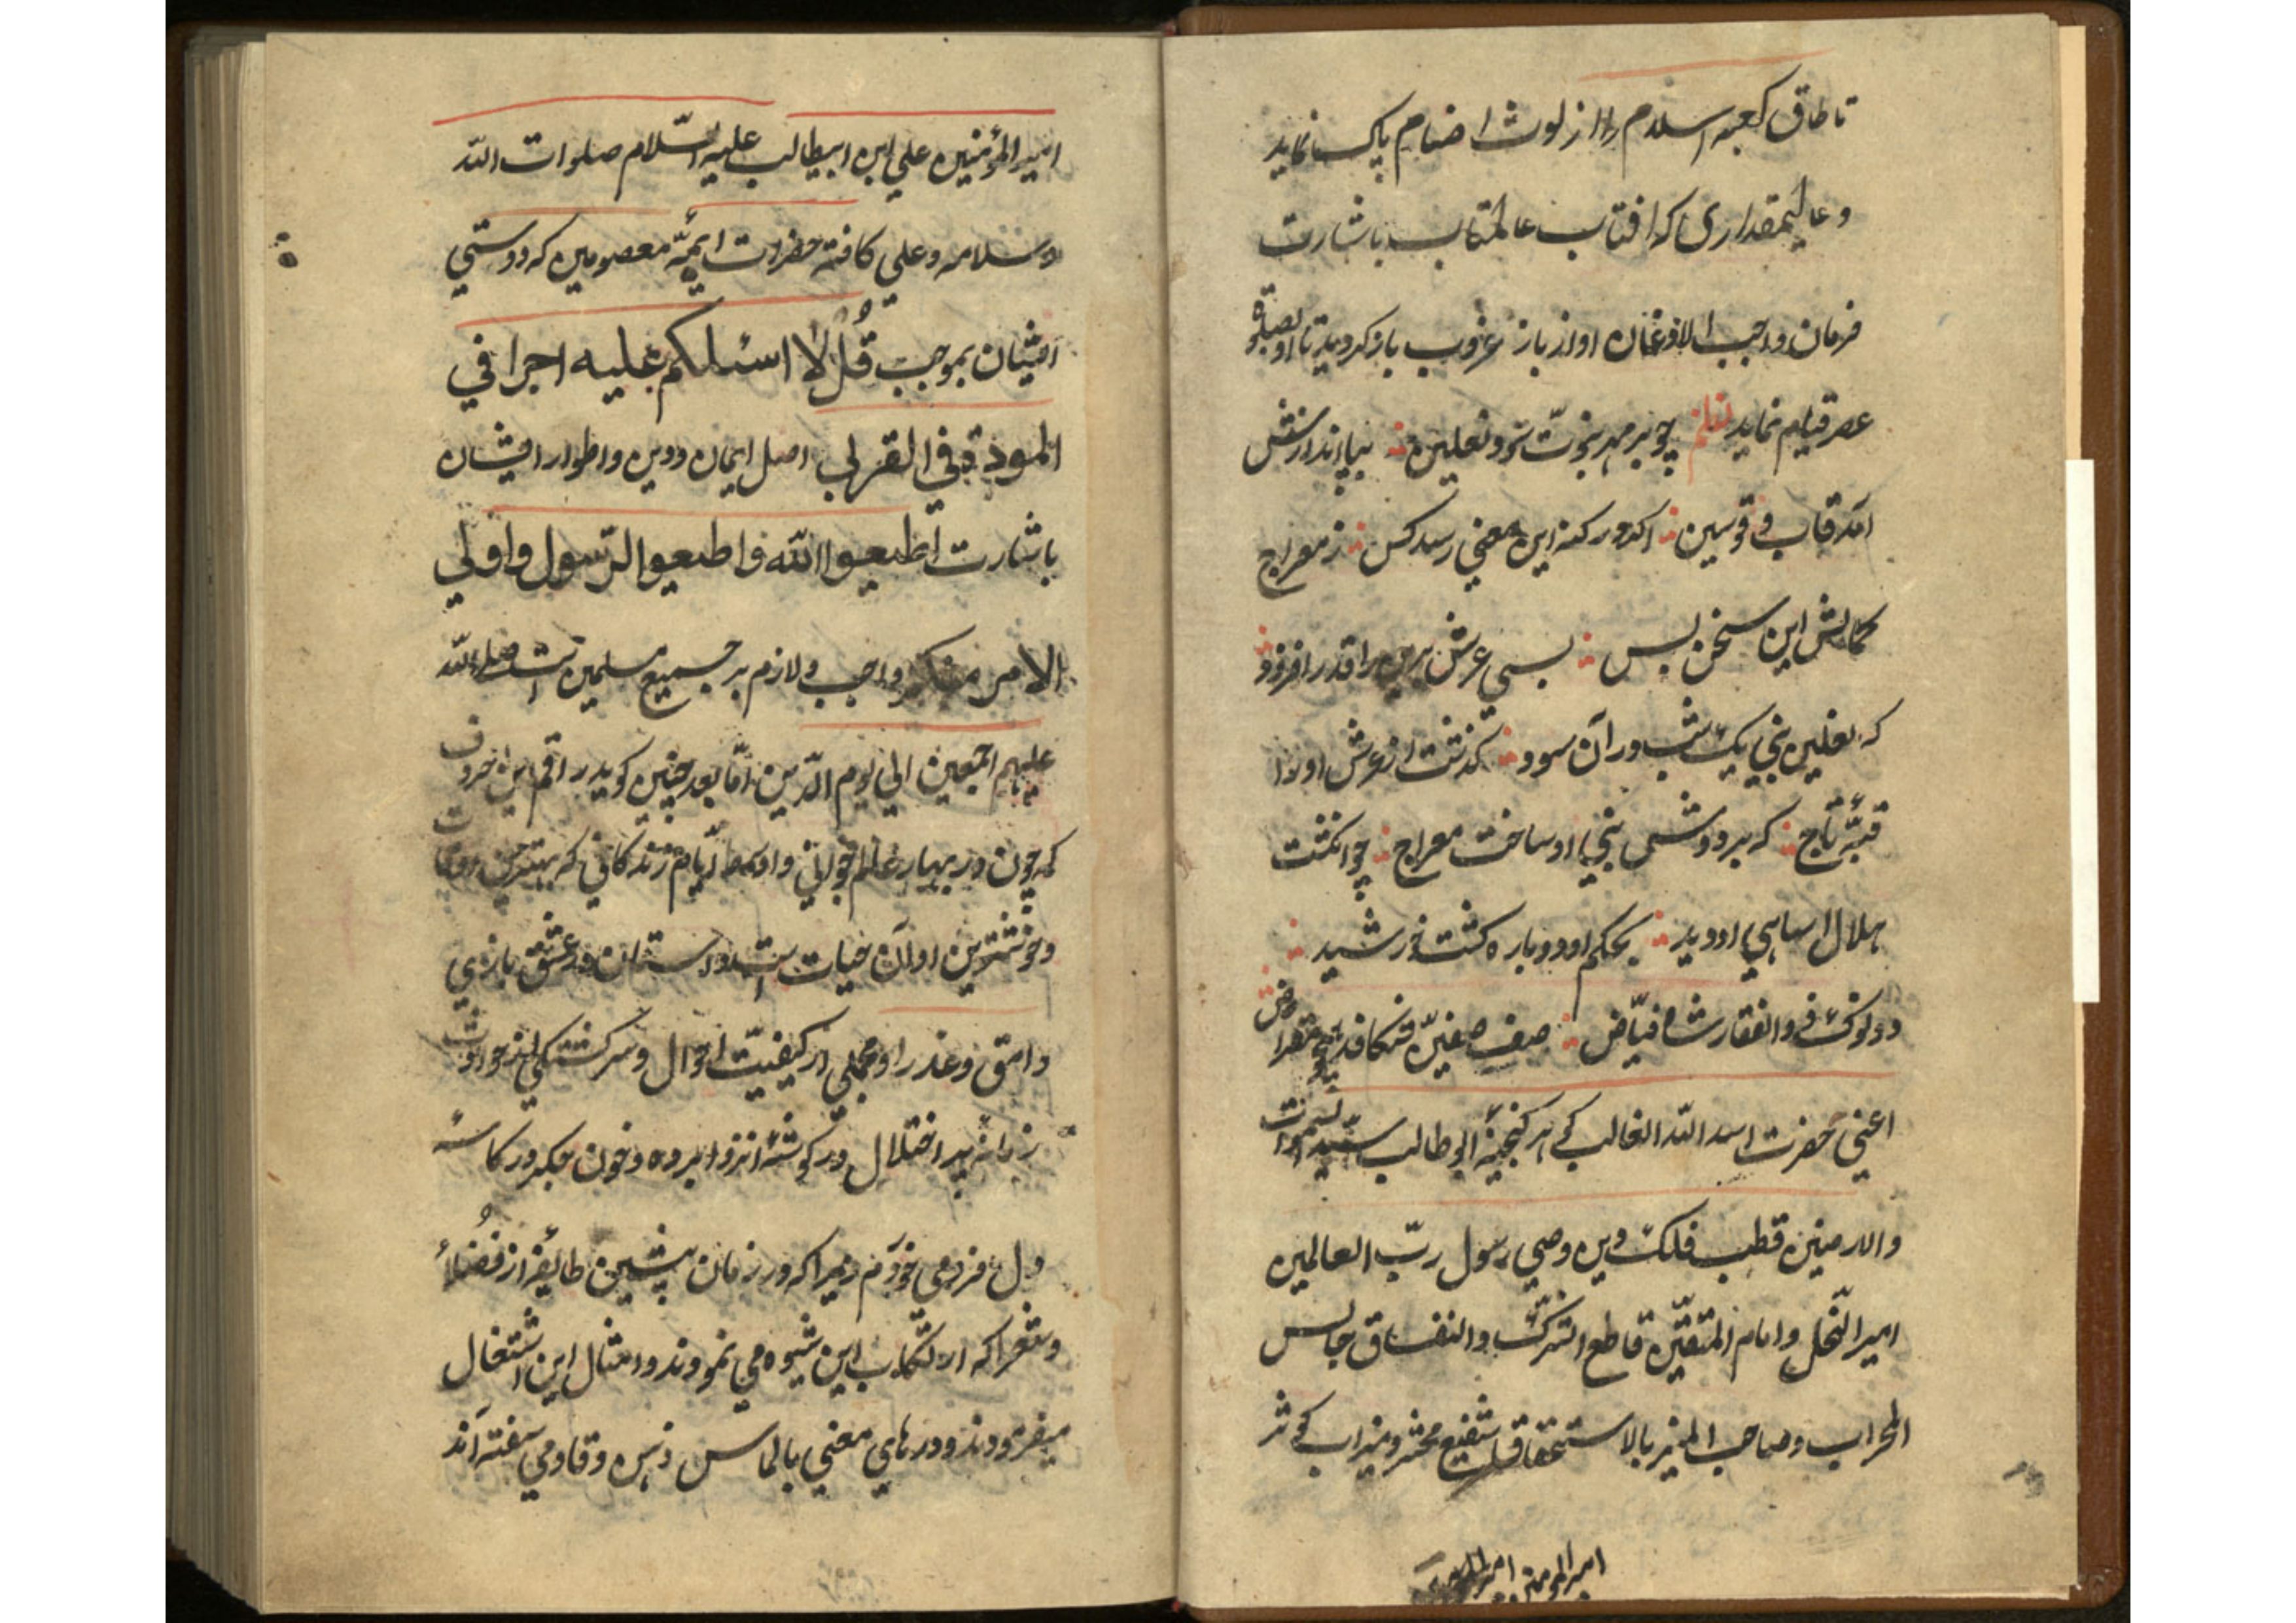 تا طاق کعبه اسلام را از لوث اصنام پاک نماید
و عالیمقداری که افتاب عالمتاب باشارت
فرمان واجب الاذعان او از باز غروب باز کردید تا او بصلوة
عصر قیام نماید نظم چو بر مهر نبوت سود نعلین بپا اندازش
آمد قاب و قوسین اکه در کنه این معنی رسد کس ز معراج
کمالش این سخن بس بسی عرش برین را قدر افزود
که نعلین نبی یک شب در آن سود کذشت از عرش او را
قبهٔ تاج که بر دوش نبی او ساخت معراج چو انکشت
هلال اسا او دید بحکم او دوباره کشت خورشید
دو نوک ذوالفقار شاه فیاض صف صفین شکافد
اعنی حضرت اسد الله الغالب کوهر کنجینهٔ ابوطالب سید السموات
والارضین قطب فلک دین وصی رسول رب العالمین
امیر النحل و امام المتقین قاطع الشرک والنفاق جالس
المحراب و صاحب المنبر بالاستحقاق شفیع محشر و میراب کوثر
امیر المومنین
امیر المؤمنین علی ابن ابیطالب علیه السّلام صلوات الله
وسلامه وعلی کافة حضرات ایمهٔ معصومین که دوستی
ایشان بموجب قُل لا اسئلکم علیه اجرا فی
المودة فی القربی اصل ایمان ودین و اطوار ایشان
باشارت اطیعوا الله واطیعوا الرّسول واولی
الامر منکم واجب ولازم بر جمیع مسلمین است صلی الله
علیهم اجمعین الی یوم الدّین امّا بعد چنین کوید راقم این حروف
که چون در بهار عالم جوانی و اوسط ایّام زندکانی که بهترین اوقات
وخوشترین اوان حیات است داستان عشق بازی
وامق وعذرا و مجملی از کیفیّت احوال و سرکشتکی از حوادث
زمانه پر اختلال در کوشهٔ انزوا برده و خون جکر در کاسهٔ
دل فرو می خوردم زیرا که در زمان پیشین طایفه از فضلا
وشعرا که ارتکاب این شیوه می نمودند و امثال این اشتغال
میفرمودند و درهای معنی بالماس ذهن وقاد می سفته اند